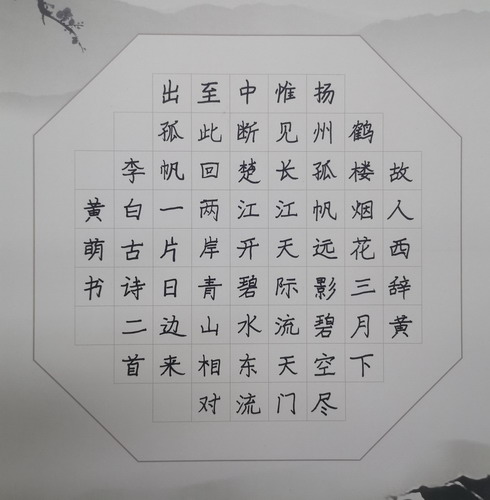 故人西辞黄
鹤楼烟花三月下
扬州孤帆远影碧空尽
惟见长江天际流天门
中断楚江开碧水东流
至此回两岸青山相对
出孤帆一片日边来
李白古诗二首
黄萌书